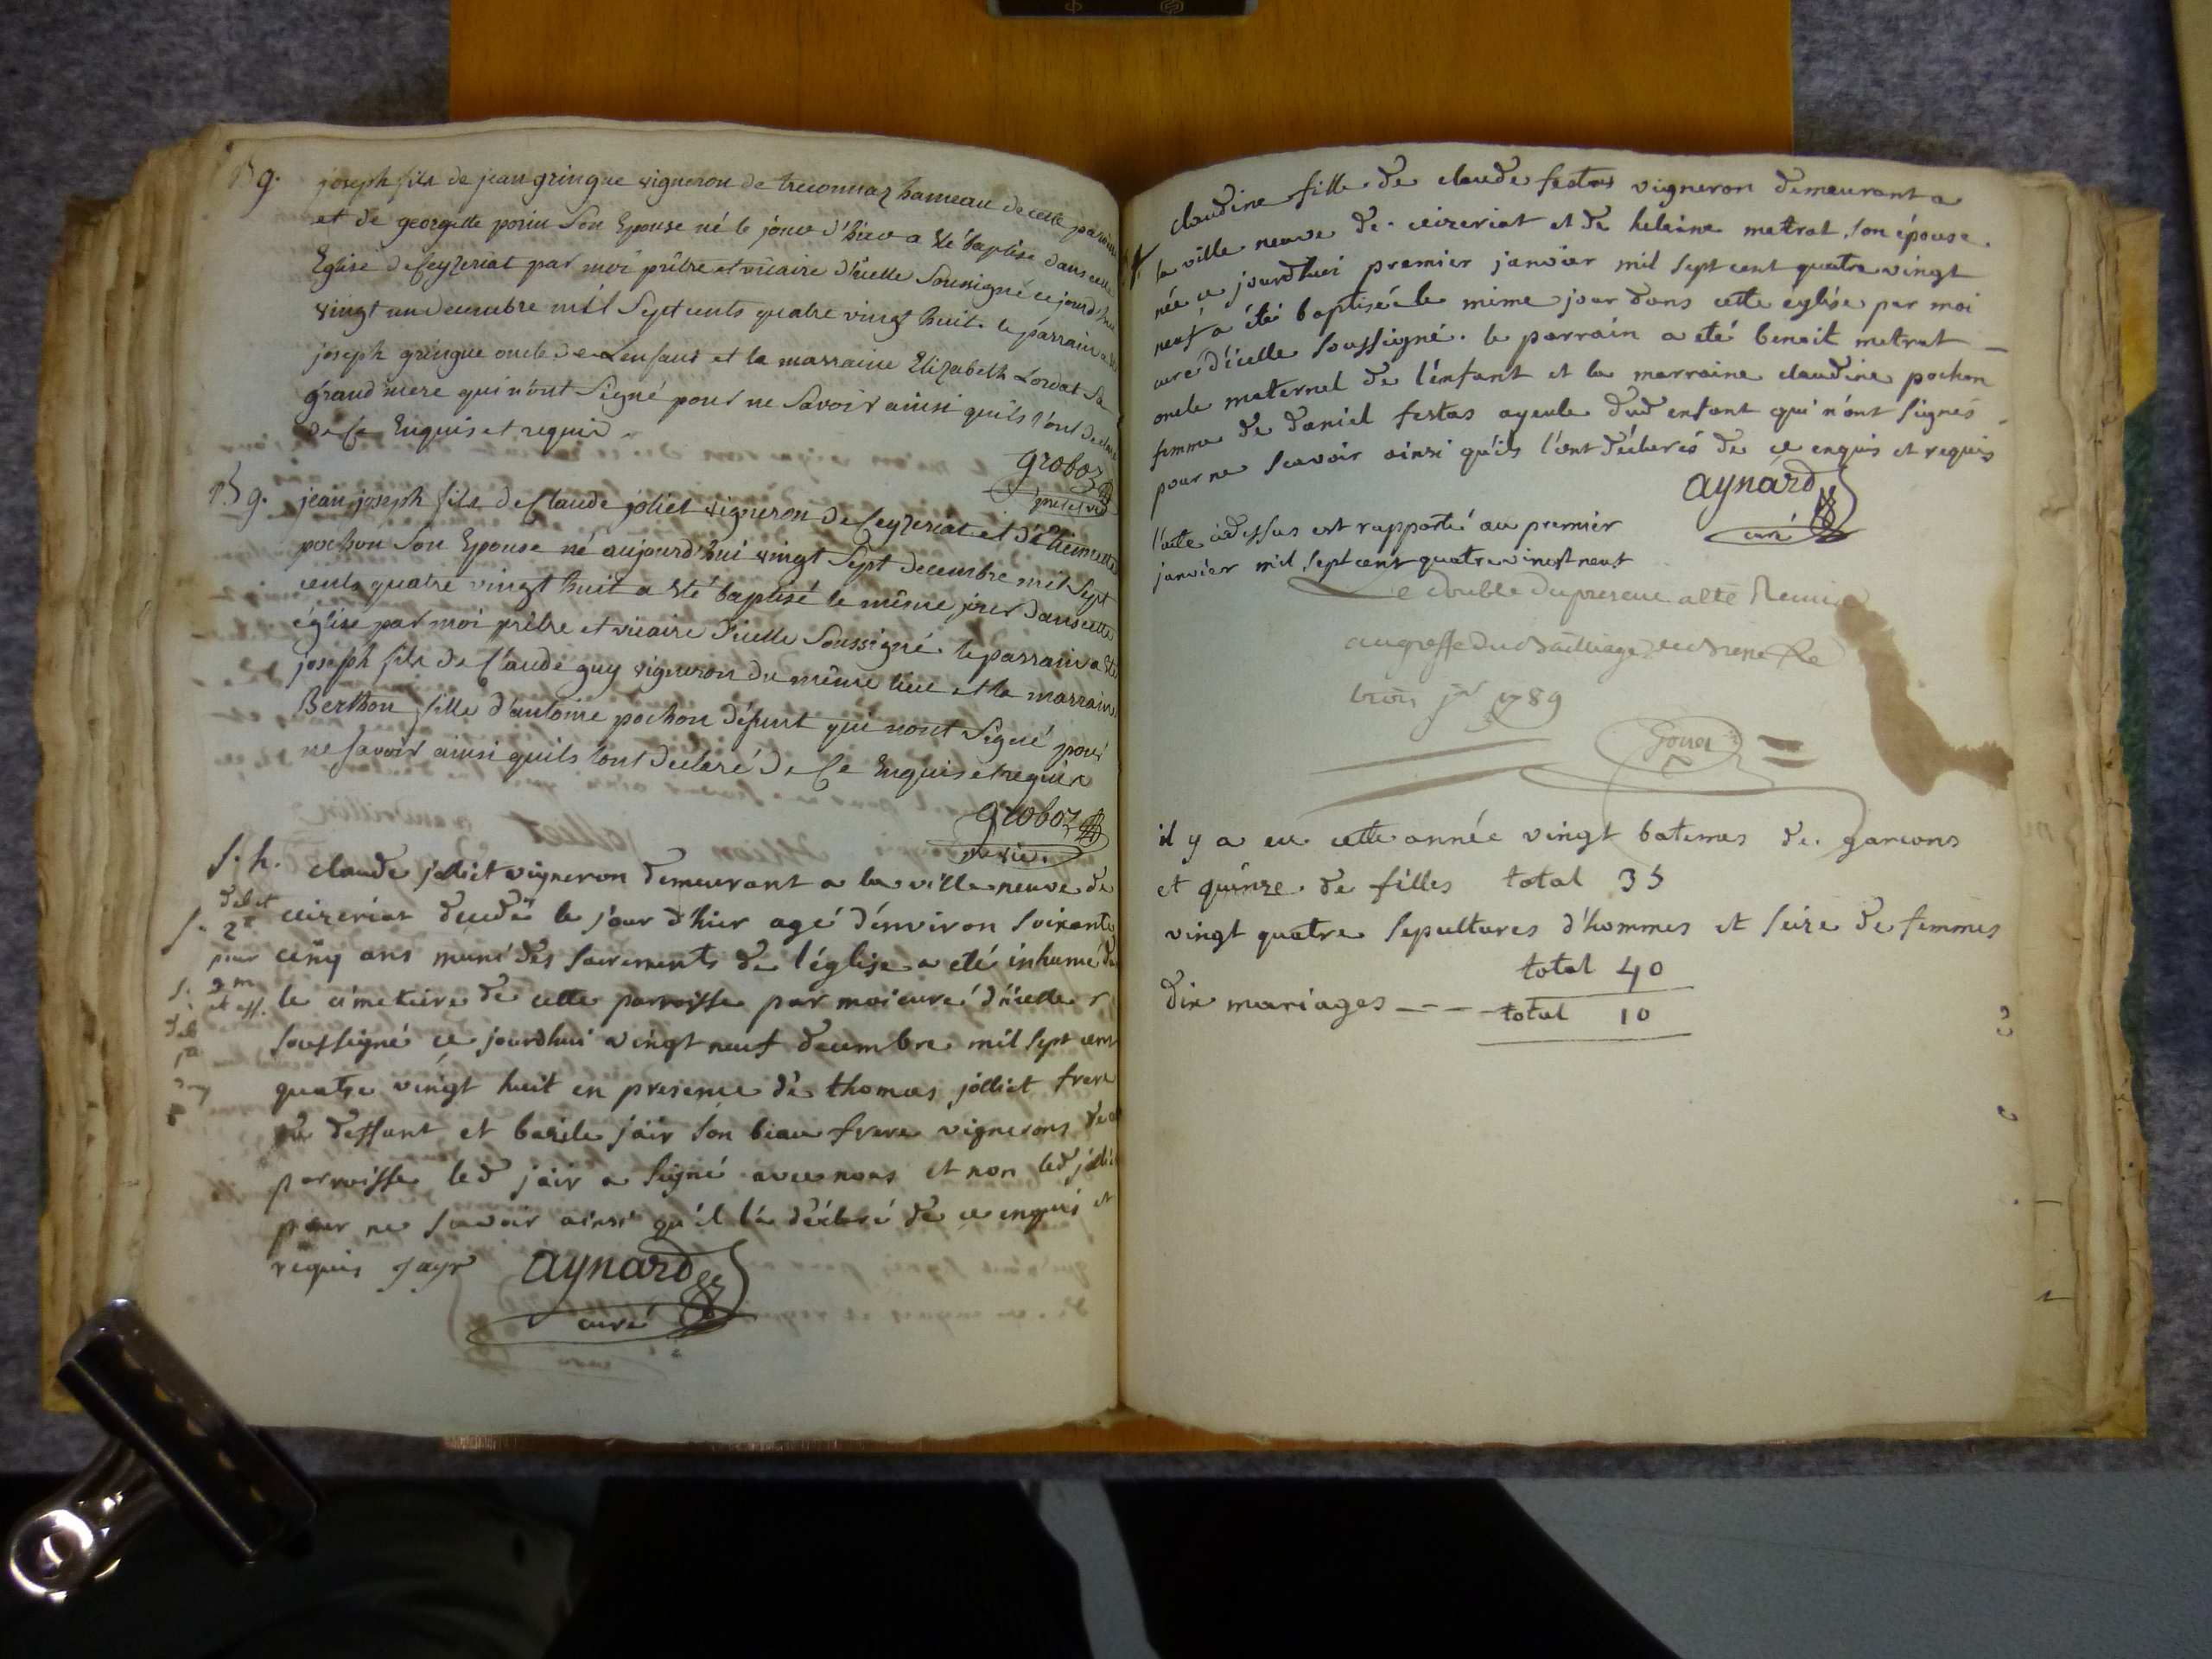 B g. joseph fils de jean gringue vigneron de treconnaz hameau de cette paroisse
et de georgette porin son Epouse né le jour d'hier a été baptisé dans cette
Eglise de Ceyzeriat par moi prêtre et vicaire d'icelle soussigné ce jourd'hui
vingt un decembre mil Sept cents quatre vingt huit. le parrain a été
joseph gringue oncle de Lenfant et la marraine Elizabeth Lordat sa
grand'mere qui n'ont signé pour ne savoir ainsi quils l'ont declaré
de Ce Enquis et requis.
groboz
pre et vic
B g. jean joseph fils de Claude joliet vigneron de Ceyzeriat et d'étiennette
pochon son Epouse né aujourd'hui vingt Sept decembre mil Sept
cents quatre vingt huit a été baptisé le même jour dans cette
église par moi prêtre et vicaire d'icelle soussigné. le parrain a été
joseph fils de Claude guy vigneron du même lieu et la marraine
Berthon fille d'antoine pochon défunt qui n'ont signé pour
ne savoir ainsi quils l'ont declaré de Ce Enquis et requis
groboz
pre vic.
S. h. claude jolliet vigneron demeurant a la ville neuve de
ceizeriat decedé le jour d'hier agé d'environ soixante
cinq ans muni des sacrements de l'église a eté inhumé da
le cimetiere de cette parroisse par moi curé d'icelle
soussigné ce jourdhui vingt neuf decembre mil sept cent
quatre vingt huit en presence de thomas jolliet frere
du deffunt et basile jair son beau frere vignerons de
parroisse led jair a signé avec nous et non led jolliet
pour ne scavoir ainsi qu'il l'a déclaré de ce enquis et
requis Jayr aynard
curé
claudine fille de claude festas vigneron demeurant a
la ville neuve de ceizeriat et de heleine metrat son épouse.
née ce jourdhui premier janvier mil sept cent quatre vingt
neuf a été baptisée le mime jour dans cette église par moi
curé d'icelle soussigné. le parrain a eté benoit metrat
oncle maternel de l'enfant et la marraine claudine pochon
femme de daniel festas ayeule dud enfant qui n'ont signés
pour ne scavoir ainsi qu'ils l'ont déclarés de ce enquis et requis
aynard
curé
l'acte cidessus est rapporté au premier
janvier mil sept cent quatre vingt neuf
Le double du present a été Remis
au greffe du Bailliage de Bresse le
trois jer 1789
il y a eu cette année vingt batemes de garcons
et quinze de filles total 35
vingt quatre sepultures d'hommes et seize de femmes
total 40
dix mariages --- total 10